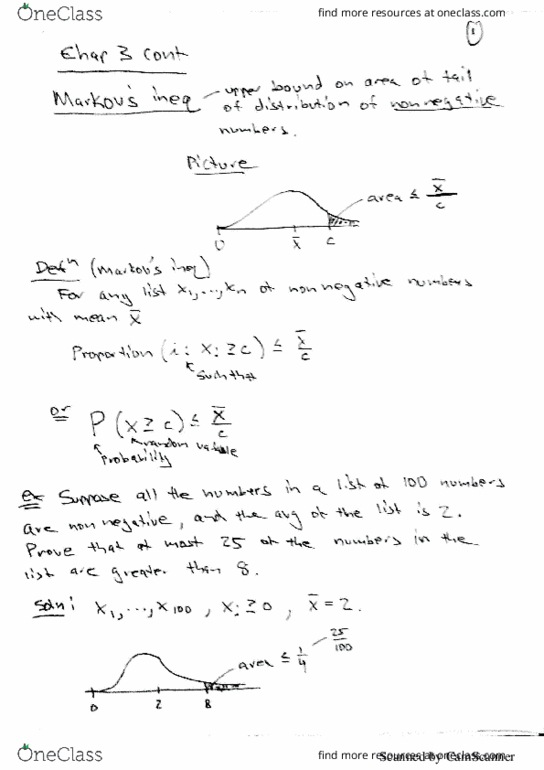 OneClass
find more resources at oneclass.com
1
Chap 3 cont
Markov's ineq - upper bound on area of tail
of distribution of nonnegative
numbers.
Picture
area ≤ x̄/c
0 x̄ c
Defⁿ (Markov's ineq)
For any list x₁,...,xₙ of nonnegative numbers
with mean x̄
Proportion (i : xᵢ ≥ c) ≤ x̄/c
such that
or P (x ≥ c) ≤ x̄/c
random variable
probability
ex Suppose all the numbers in a list of 100 numbers
are non negative, and the avg of the list is 2.
Prove that at most 25 of the numbers in the
list are greater than 8.
Soln: x₁,...,x₁₀₀, xᵢ ≥ 0, x̄ = 2.
25/100
area ≤ 1/4
0 2 8
OneClass
find more resources at oneclass.com
Scanned by CamScanner